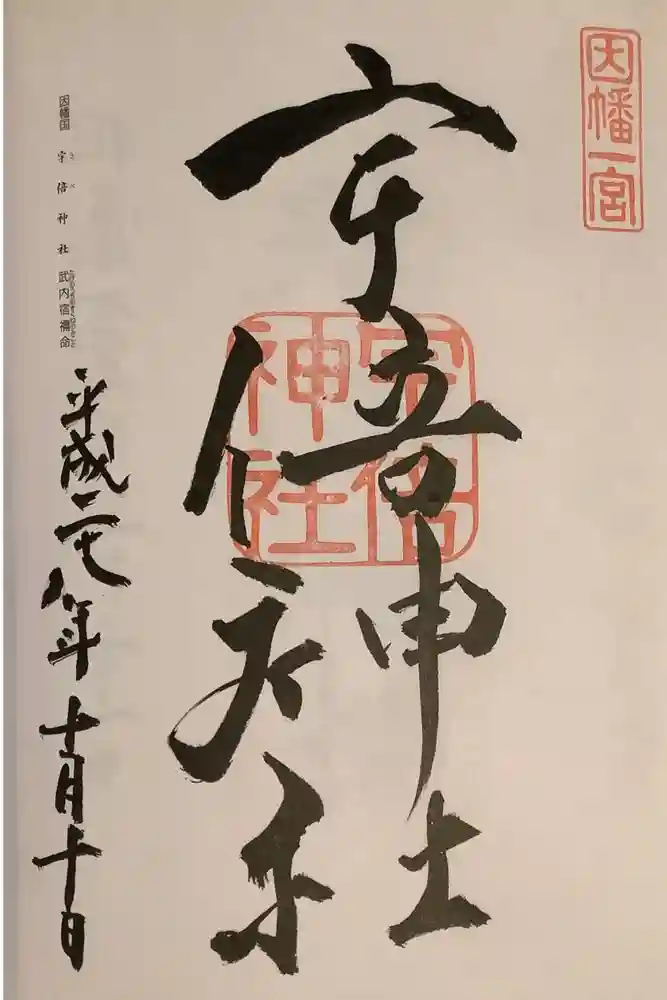 因幡一宮
宇倍神社
宇倍神社
因幡国 宇倍神社 武内宿禰命
平成二十八年十月十日